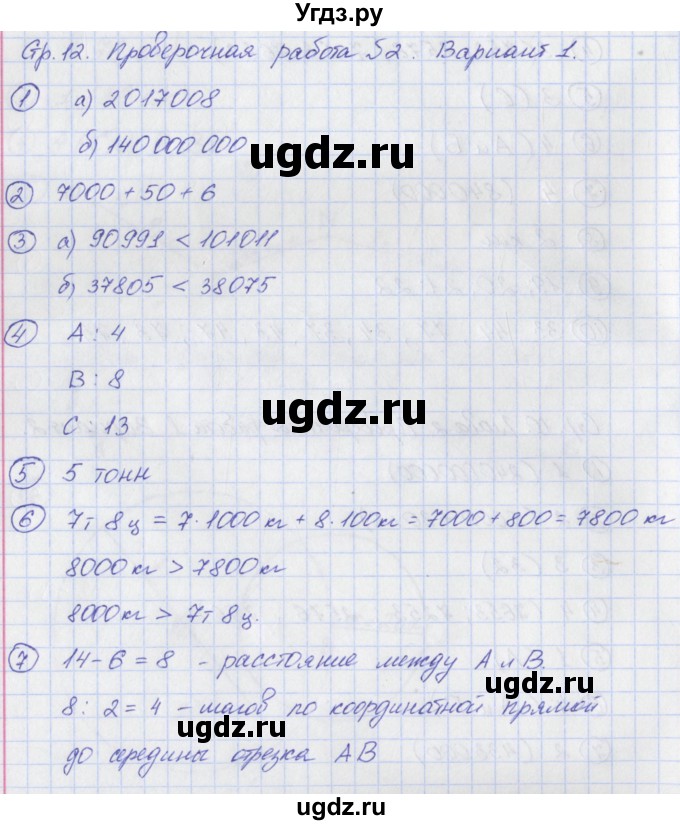 Угдз.ру
Стр.12. Проверочная работа S2. Вариант 1.
① а) 2017008
б) 140 000 000
ugdz.ru
② 7000 + 50 + 6
③ а) 90991 < 101011
ugdz.ru
б) 37805 < 38075
④ А : 4
В : 8
ugdz.ru
С : 13
⑤ 5 тонн
ugdz.ru
⑥ 7т 8ц = 7·1000кг + 8·100кг = 7000 + 800 = 7800 кг
8000кг > 7800кг
8000кг > 7т 8ц.
ugdz.ru
⑦ 14 - 6 = 8 - расстояние между А и В.
8 : 2 = 4 - шагов по координатной прямой
ugdz.ru
до середины отрезка АВ
ugdz.ru